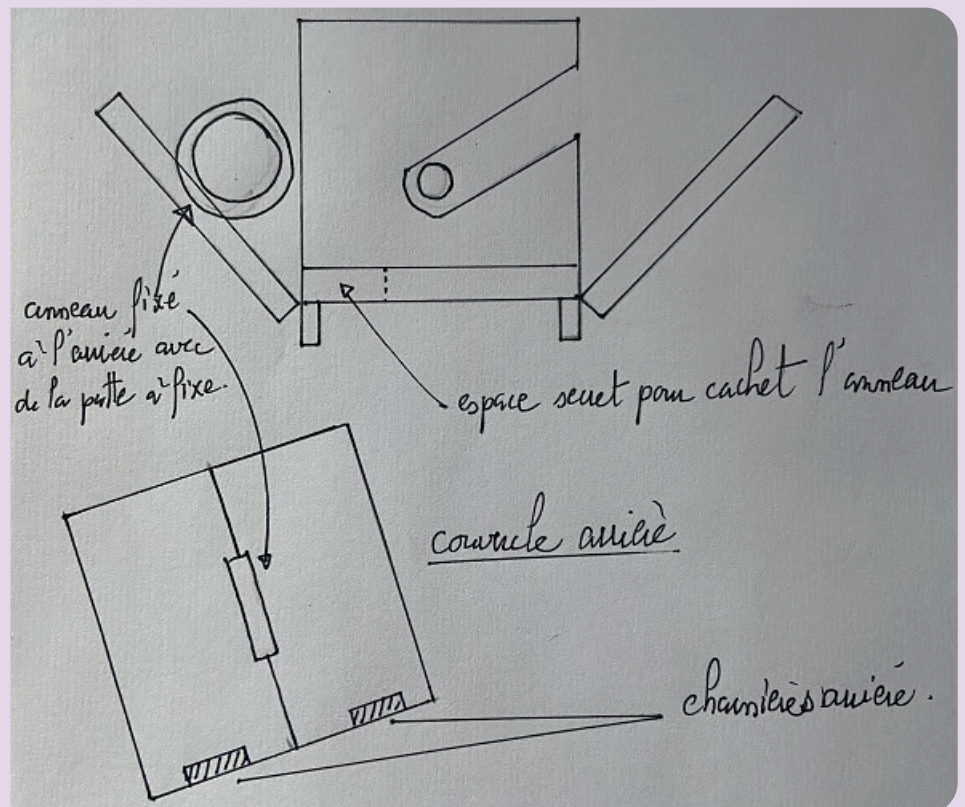 anneau fixé
à l'arrièré avec
de la patte à fixe.
espace secret pour cachet l'anneau
couvrcle arrièrè
charnièrès arrièré.